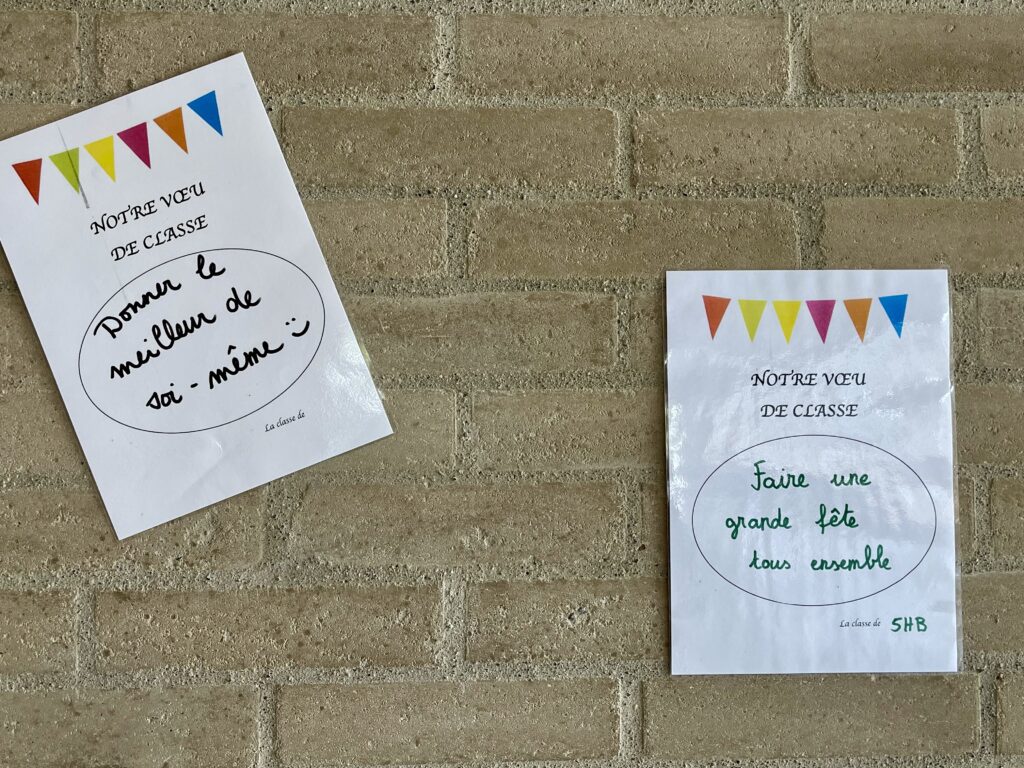 NOTRE VŒU
DE CLASSE
Donner le
meilleur de
soi-même :)
La classe de
NOTRE VŒU
DE CLASSE
Faire une
grande fête
tous ensemble
La classe de 5HB